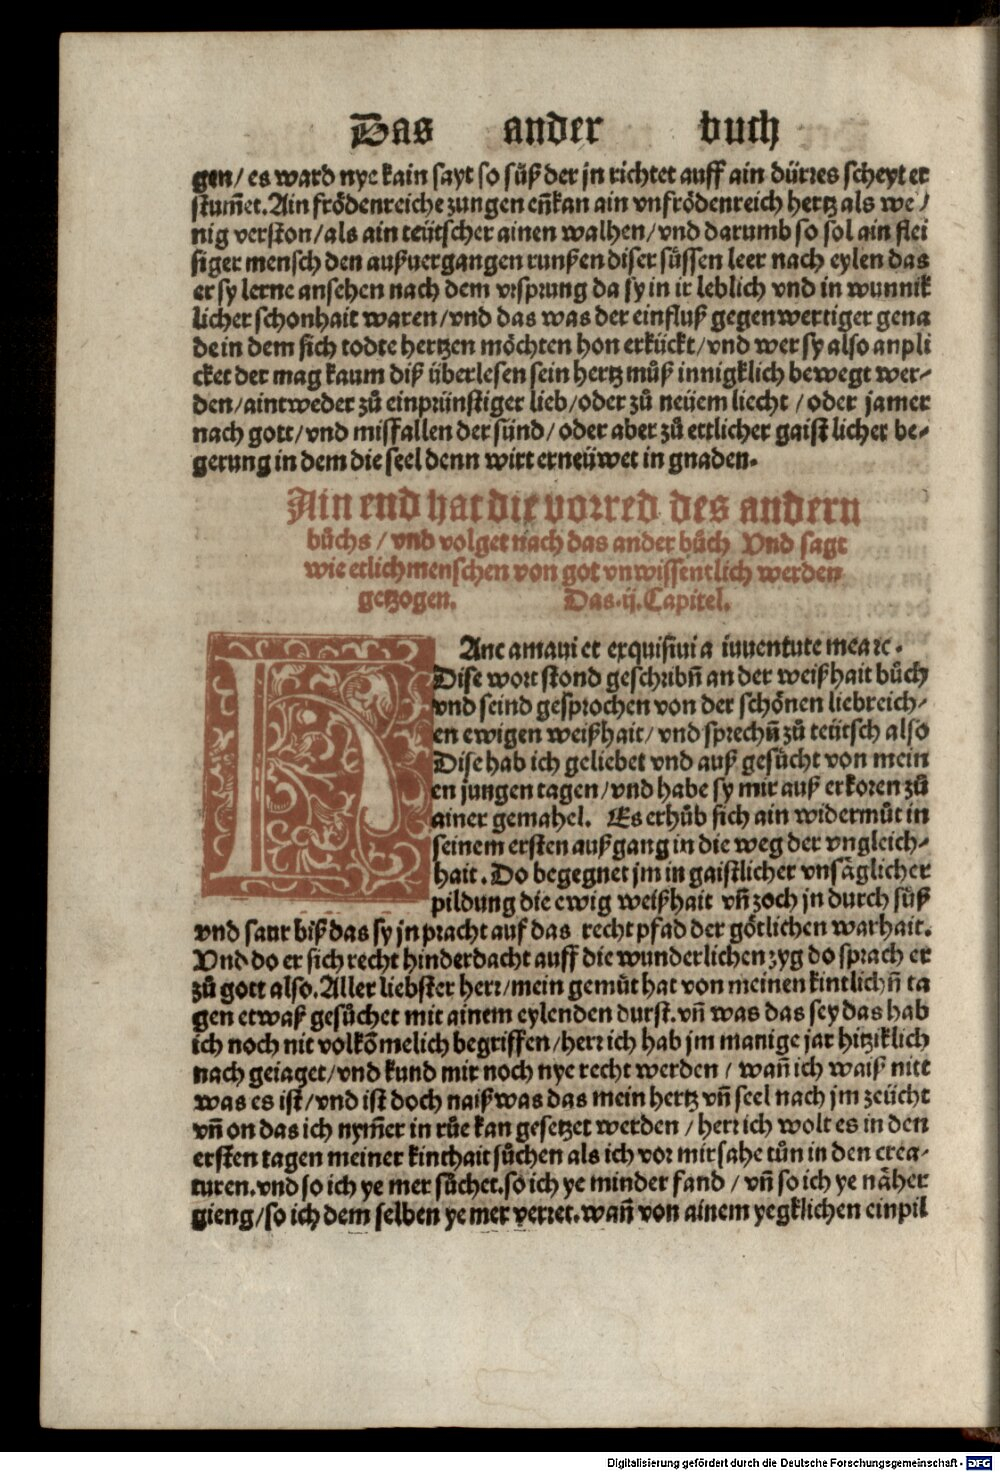 Das ander buch
gen/ es ward nye kain sayt so süß der jn richtet auff ain dürres scheyt er
stum̃et. Ain frödenreiche zungen eñkan ain vnfrödenreich hertz als we/
nig verston/als ain teütscher ainen walhen/vnd darumb so sol ain flei
siger mensch den außuergangen runßen diser süssen leer nach eylen das
er sy lerne ansehen nach dem vrsprung da sy in ir leblich vnd in wunnik
licher schonhait waren/vnd das was der einfluß gegenwertiger gena
de in dem sich todte hertzen möchten hon erkückt/vnd wer sy also anpli
cket der mag kaum diß überlesen sein hertz müß innigklich bewegt wer-
den/aintweder zů einprünstiger lieb/oder zů neüem liecht / oder jamer
nach gott/vnd missfallen der sünd/ oder aber zů ettlicher gaistlicher be-
gerung in dem die seel denn wirt erneüwet in gnaden.
Ain end hat die vorred des andern
bůchs / vnd volget nach das ander bůch Vnd sagt
wie etlich menschen von got vnwissentlich werden
getzogen. Das.ij.Capitel.
HAnc amaui et exquisiui a iuuentute mea ꝛc.
Dise wort stond geschribn̄ an der weißhait bůch
vnd seind gesprochen von der schönen liebreich-
en ewigen weißhait/ vnd sprechn̄ zů teütsch also
Dise hab ich geliebet vnd auß gesůcht von mein
en jungen tagen/vnd habe sy mir auß erkoren zů
ainer gemahel. Es erhůb sich ain widermůt in
seinem ersten außgang in die weg der vngleich-
hait. Do begegnet jm in gaistlicher vnsäglicher
pildung die ewig weißhait vn̄ zoch jn durch süß
vnd saur biß das sy jn pracht auf das recht pfad der götlichen warhait.
Vnd do er sich recht hinderdacht auff die wunderlichen zyg do sprach er
zů gott also. Aller liebster herr/mein gemüt hat von meinen kintlichn̄ ta
gen etwaß gesůchet mit ainem eylenden durst. vn̄ was das sey das hab
ich noch nit volkōmelich begriffen/herr ich hab jm manige jar hitziklich
nach geiaget/vnd kund mir noch nye recht werden / wan̄ ich waiß nitt
was es ist/vnd ist doch naißwas das mein hertz vn̄ seel nach jm zeücht
vn̄ on das ich nym̃er in růe kan gesetzet werden / herr ich wolt es in den
ersten tagen meiner kinthait sůchen als ich vor mir sahe tůn in den crea-
turen. vnd so ich ye mer sůchet. so ich ye minder fand / vn̄ so ich ye näher
gieng/so ich dem selben ye mer verret. wan̄ von ainem yegklichen einpil
Digitalisierung gefördert durch die Deutsche Forschungsgemeinschaft - DFG